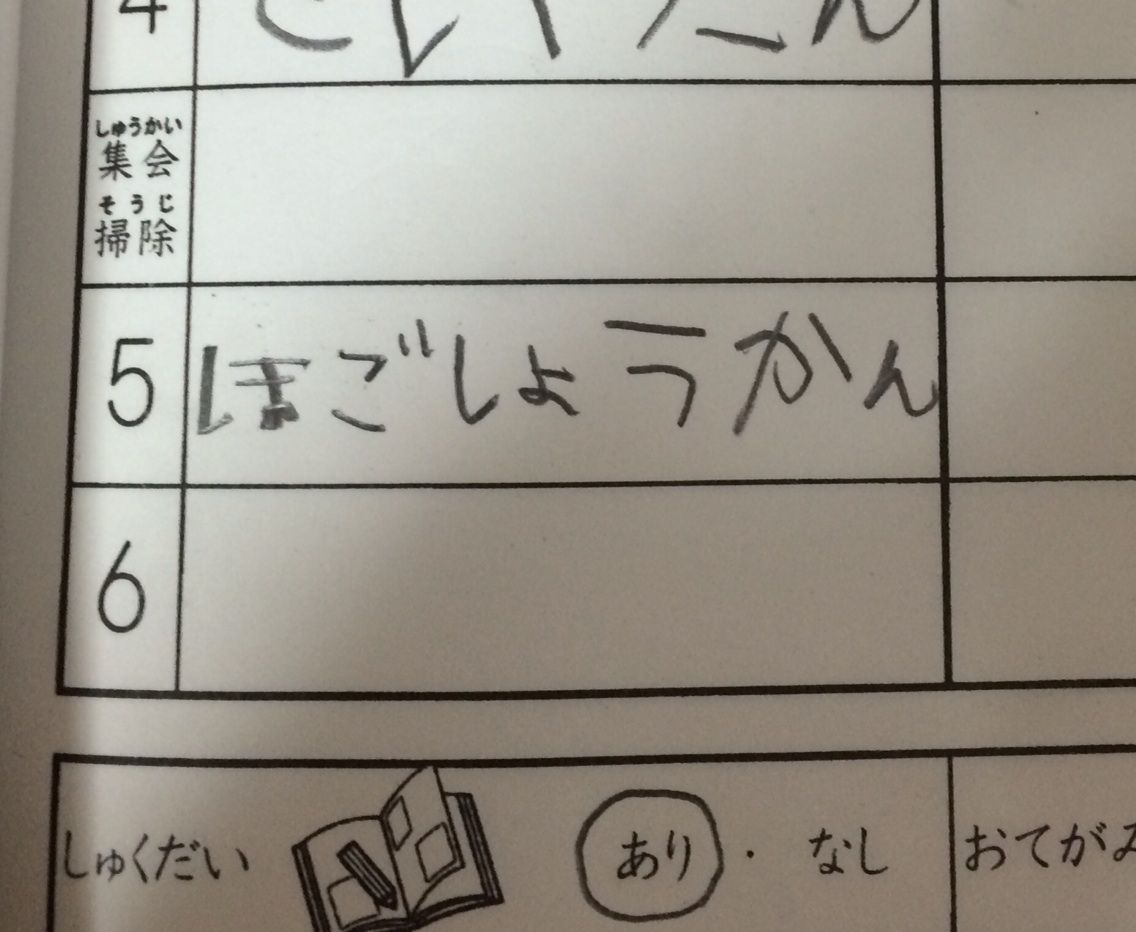 4
しゅうかい
集会
そうじ
掃除
5 ほごしょうかん
6
しゅくだい あり ・ なし おてがみ